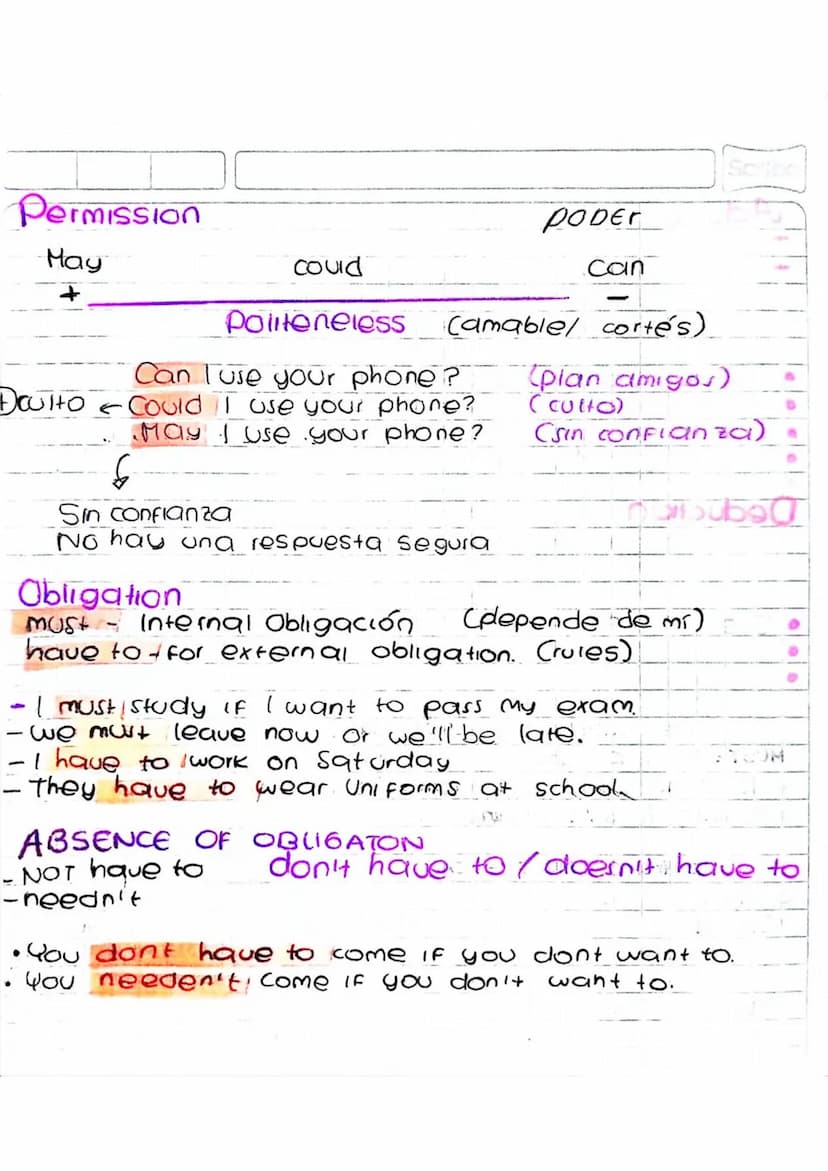 Permission PODEr
May could can
+ -
Politeneless (amable/ cortés)
Can I use your phone? (plan amigos)
← Could I use your phone? (culto)
May I use your phone? (sin confianza)
Sin confianza
No hay una respuesta segura
Obligation
must - Internal Obligación (depende de mí)
have to → for external obligation. (rules)
- I must study if I want to pass my exam
- we must leave now or we'll be late.
- I have to work on Saturday
- They have to wear uniforms at school
ABSENCE OF OBLIGATON
- NOT have to don't have to / doesn't have to
- needn't
• You dont have to come if you dont want to.
• You needen't come if you don't want to.